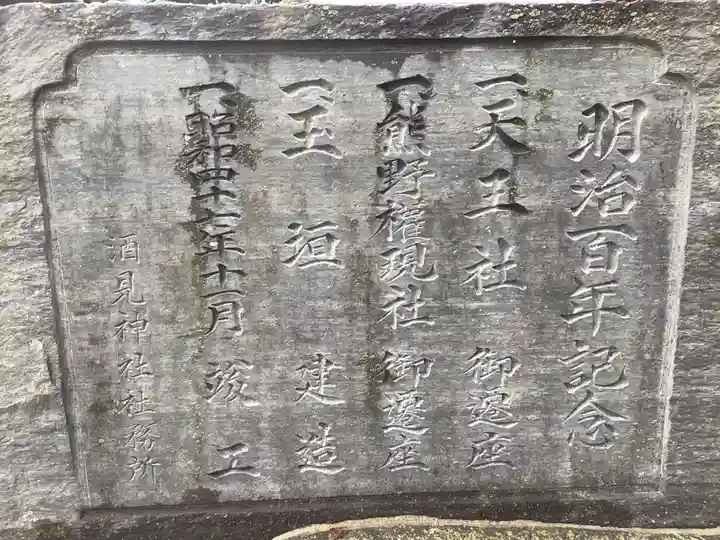 明治百年記念
一天王社 御遷座
一熊野権現社 御遷座
一玉垣建造
一昭和四十七年十一月 竣工
酒見神社社務所